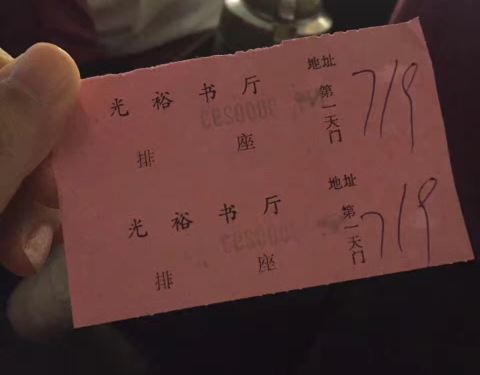 光裕书厅 地址 第一天门 719
排 座
光裕书厅 地址 第一天门 719
排 座